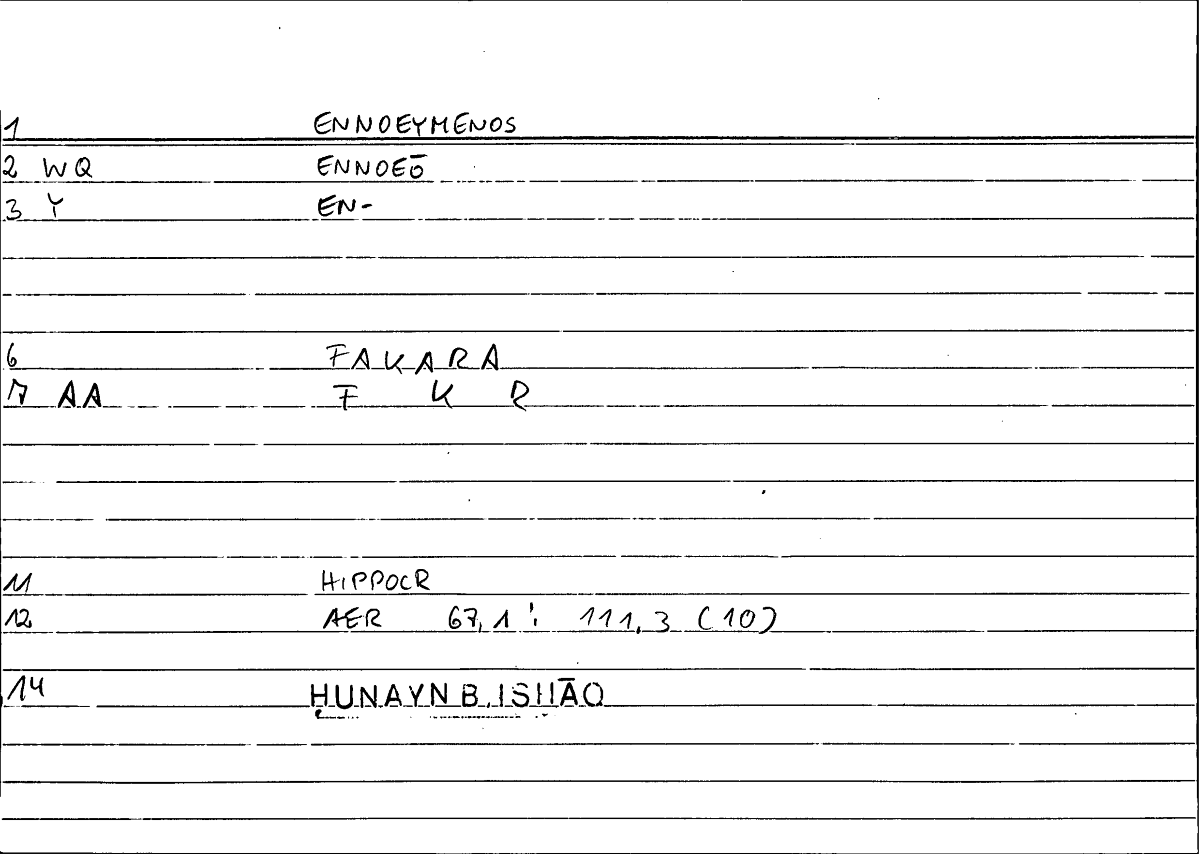 1 ENNOEYMENOS
2 WQ ENNOEŌ
3 Y EN-
6 FAKARA
7 AA F K R
11 HIPPOCR
12 AER 67,1 : 111,3 (10)
14 ḤUNAYN B. ISḤĀQ